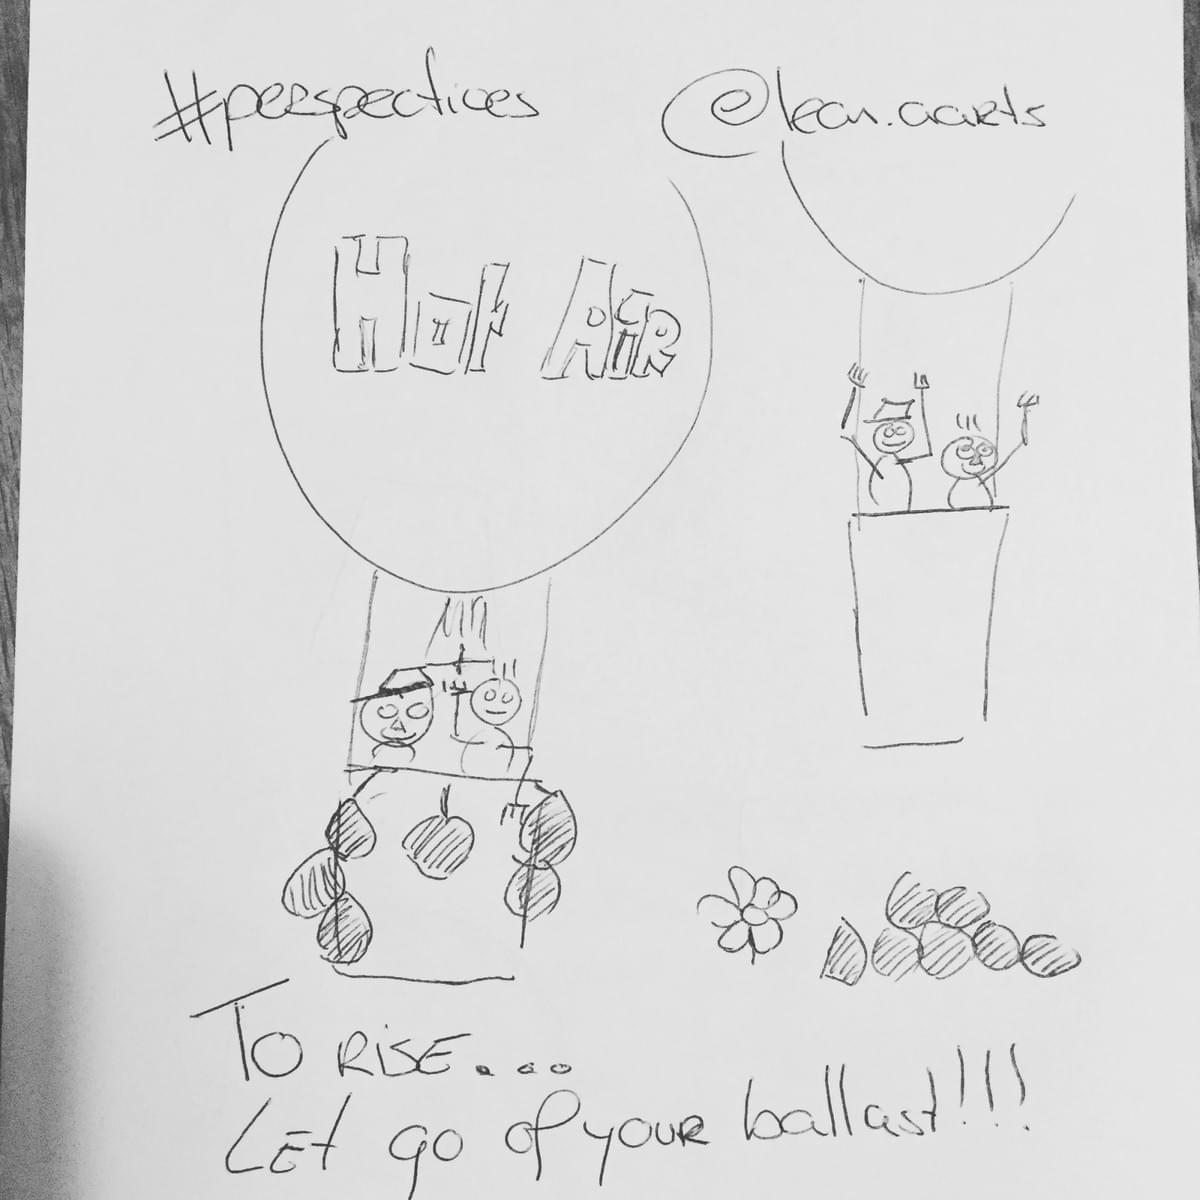 #perspectives @lean.aarts
Hot Air
To RiSE...
LEt go of your ballast!!!